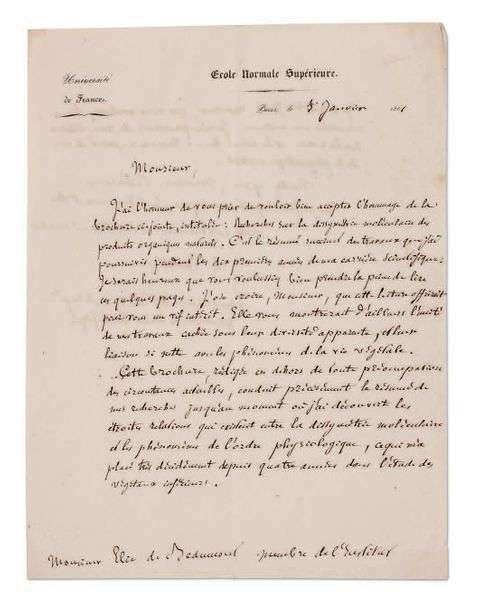 Université
de France.
Ecole Normale Supérieure.
Paris, le 5 Janvier 1861
Monsieur,
J'ai l'honneur de vous prier de vouloir bien accepter l'hommage de la
brochure ci-jointe, intitulée : Recherches sur la dissymétrie moléculaire des
produits organiques naturels. C'est le résumé succinct de travaux que j'ai
poursuivis pendant les dix premières années de ma carrière scientifique.
Je serais heureux que vous voulussiez bien prendre la peine de lire
ces quelques pages. J'ose croire, Monsieur, que cette lecture offrirait
pour vous un vif intérêt. Elle vous montrerait d'ailleurs l'unité
de mes travaux cachée sous leur diversité apparente, et leur
liaison si nette avec les phénomènes de la vie végétale.
Cette brochure, rédigée en dehors de toute préoccupation
des circonstances actuelles, conduit précisément le résumé de
mes recherches jusqu'au moment où j'ai découvert les
étroites relations qui existent entre la dissymétrie moléculaire
et les phénomènes de l'ordre physiologique, ce qui m'a
placé très décidément depuis quatre années dans l'étude des
végétaux inférieurs.
Monsieur Elie de Beaumont membre de l'Institut